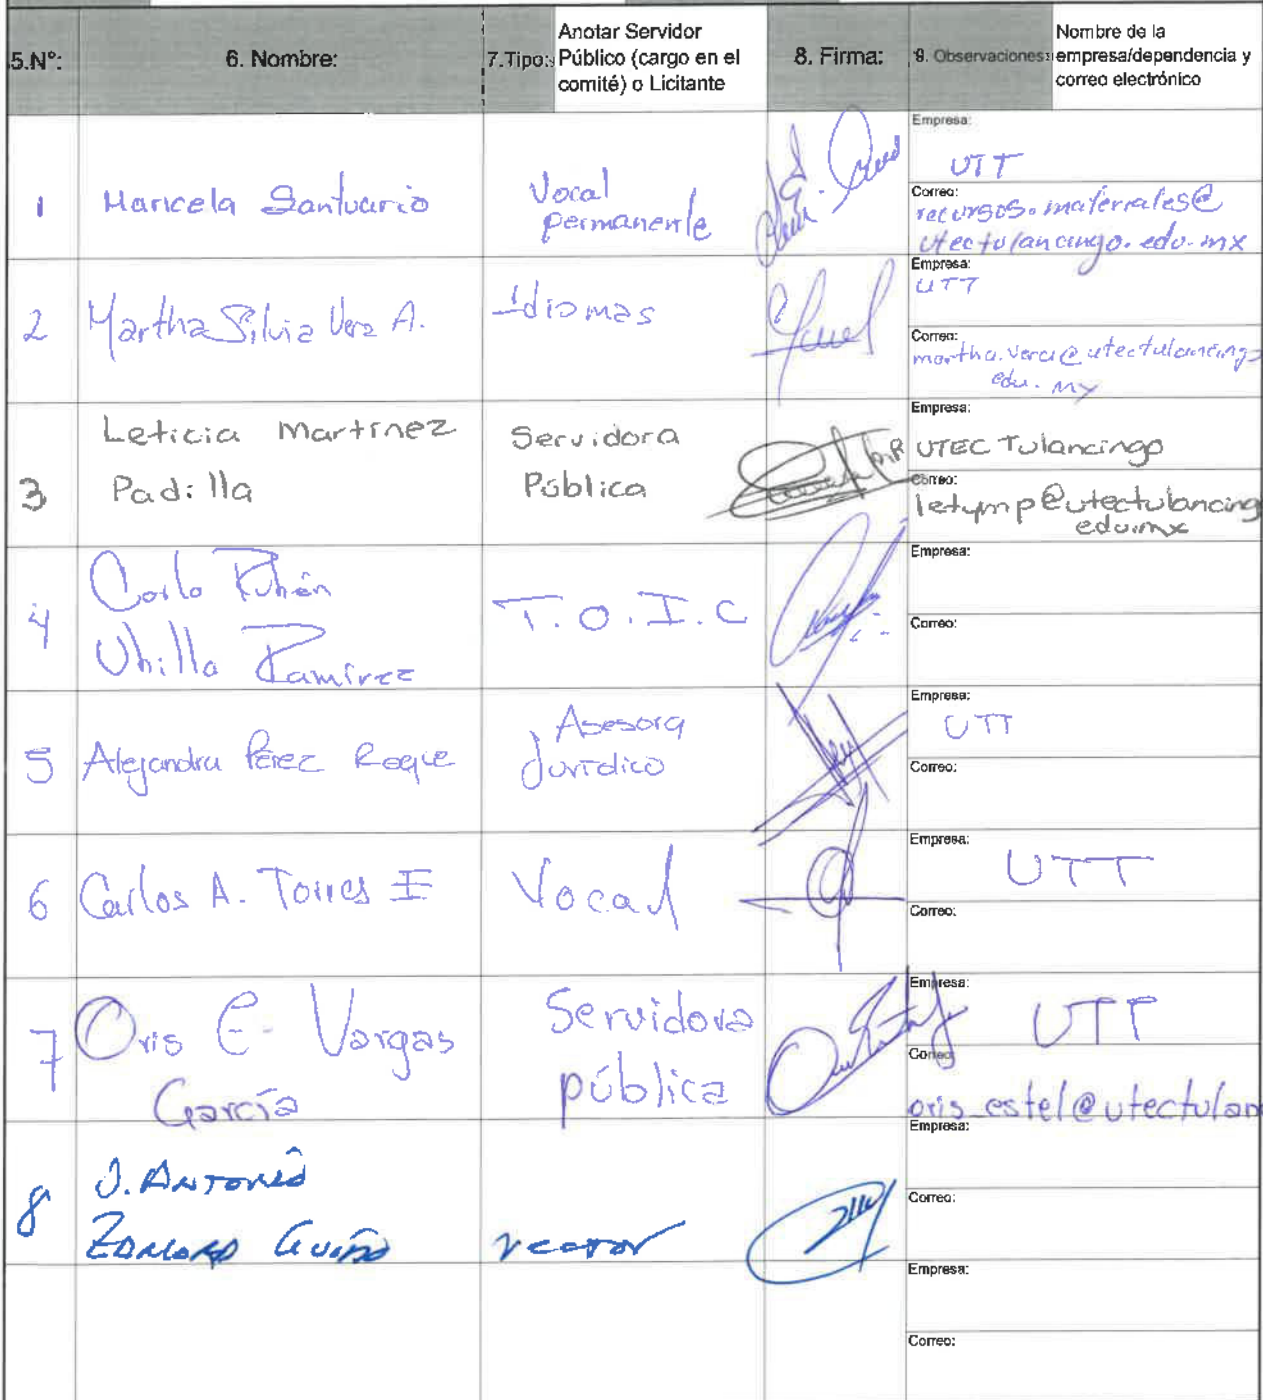 5.N°:
6. Nombre:
7.Tipo:
Anotar Servidor
Público (cargo en el
comité) o Licitante
8. Firma:
9. Observaciones:
Nombre de la
empresa/dependencia y
correo electrónico
1
Maricela Santuario
Vocal
permanente
Empresa:
UTT
Correo:
recursos.materiales@
utectulancingo.edu.mx
2
Martha Silvia Vera A.
Idiomas
Empresa:
UTT
Correo:
martha.vera@utectulancingo
edu.mx
3
Leticia Martínez
Padilla
Servidora
Pública
Empresa:
UTEC Tulancingo
Correo:
letymp@utectulancing
edu.mx
4
Carlo Rubén
Ubilla Ramírez
T.O.I.C
Empresa:
Correo:
5
Alejandra Pérez Roque
Asesora
Jurídico
Empresa:
UTT
Correo:
6
Carlos A. Torres E
Vocal
Empresa:
UTT
Correo:
7
Oris E. Vargas
García
Servidora
pública
Empresa:
UTT
Correo:
oris_estel@utectulan
8
J. Antonio
Rector
Empresa:
Correo:
Empresa:
Correo: